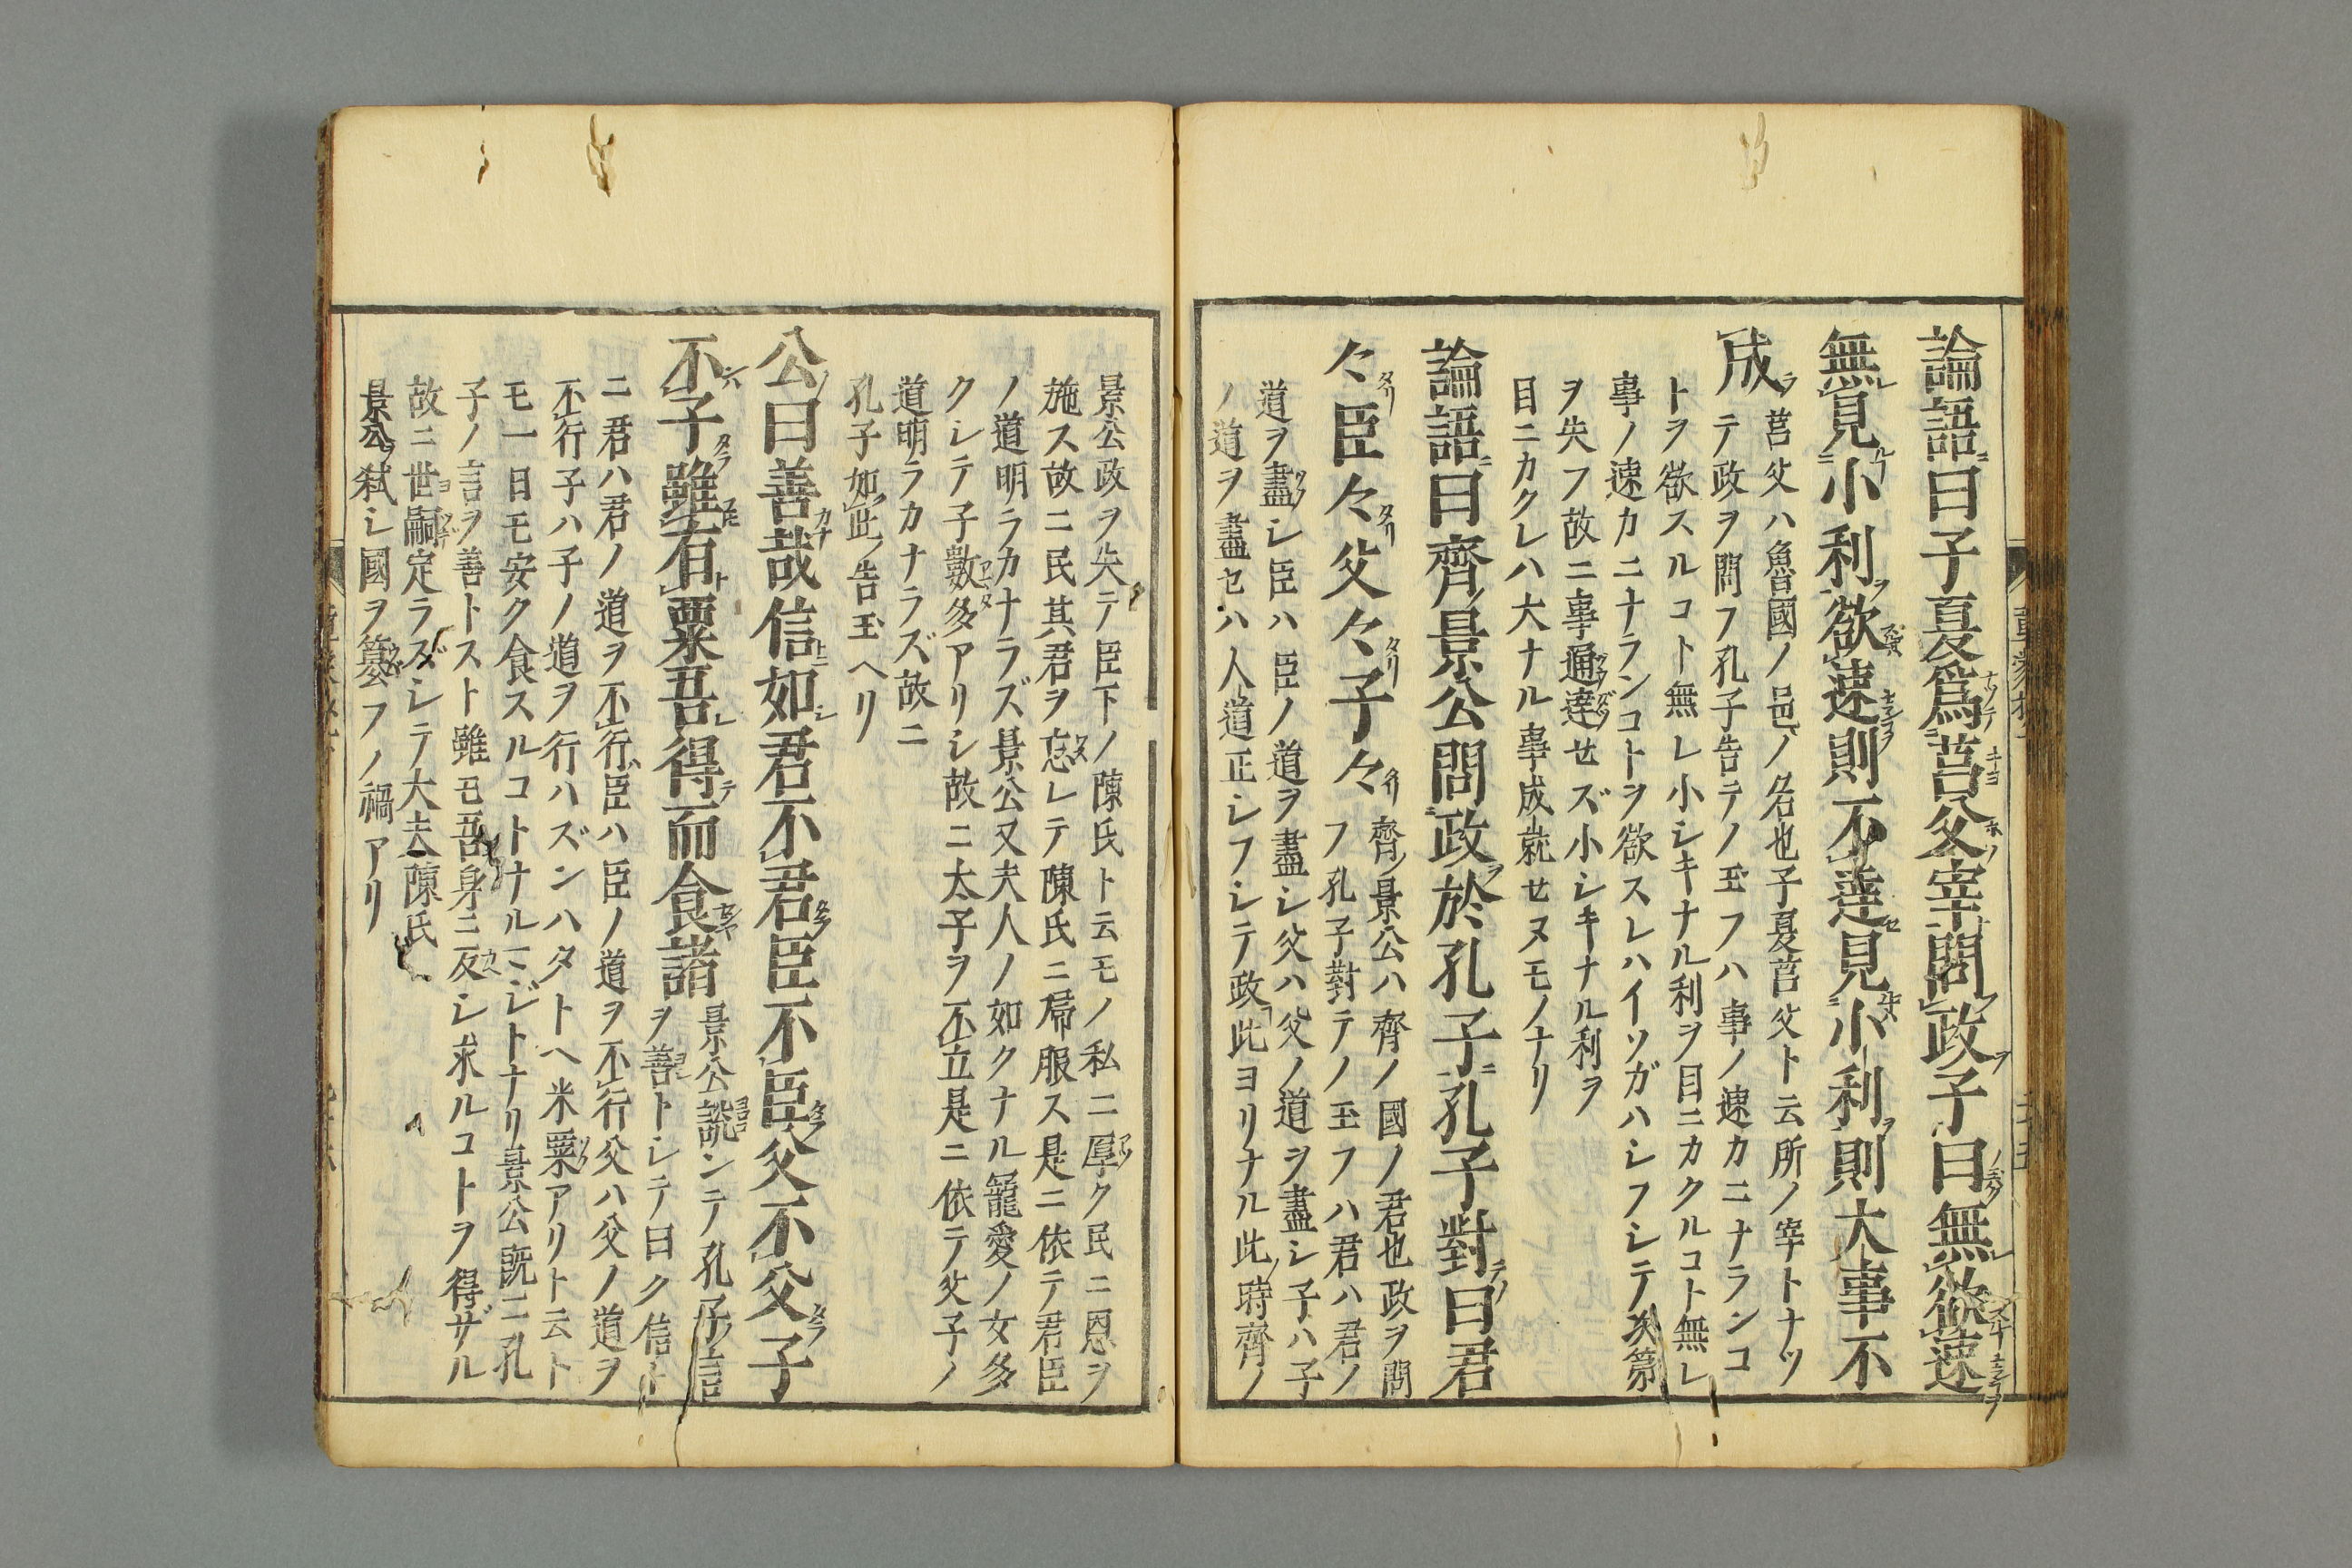 論語曰子夏爲莒父宰問政子曰無欲速
無見小利欲速則不達見小利則大事不
成
莒父ハ魯國ノ邑ノ名也子夏莒父ト云所ノ宰トナツ
テ政ヲ問フ孔子告テノ玉フハ事ノ速カニナランコ
トヲ欲スルコト無レ小シキナル利ヲ目ニカクルコト無レ
事ノ速カニナランコトヲ欲スレハイソガハシフシテ次第
ヲ失フ故ニ事通達せズ小シキナル利ヲ
目ニカクレハ大ナル事成就せヌモノナリ
論語曰齊景公問政於孔子孔子對曰君
々臣々父々子々
齊ノ景公ハ齊ノ國ノ君也政ヲ問
フ孔子對テノ玉フハ君ハ君ノ
道ヲ盡シ臣ハ臣ノ道ヲ盡シ父ハ父ノ道ヲ盡シ子ハ子
ノ道ヲ盡セハ人道正シフシテ政此ヨリナル此時齊ノ
景公政ヲ失テ臣下ノ陳氏ト云モノ私ニ厚ク民ニ恩ヲ
施ス故ニ民其君ヲ忘レテ陳氏ニ帰服ス是ニ依テ君臣
ノ道明ラカナラズ景公又夫人ノ如クナル寵愛ノ女多
クシテ子數多アリシ故ニ太子ヲ不立是ニ依テ父子ノ
道明ラカナラズ故ニ
孔子如此告玉ヘリ
公曰善哉信如君不君臣不臣父不父子
不子雖有粟吾得而食諸
景公説ンテ孔子ノ言
ヲ善トシテ曰ク信ト
ニ君ハ君ノ道ヲ不行臣ハ臣ノ道ヲ不行父ハ父ノ道ヲ
不行子ハ子ノ道ヲ行ハズンハタトヘ米粟アリト云ト
モ一日モ安ク食スルコトナルマジトナリ景公既ニ孔
子ノ言ヲ善トスト雖モ吾身ニ反シ求ルコトヲ得ザル
故ニ世嗣定ラズシテ大夫陳氏
景公ヲ弑シ國ヲ簒フノ禍アリ